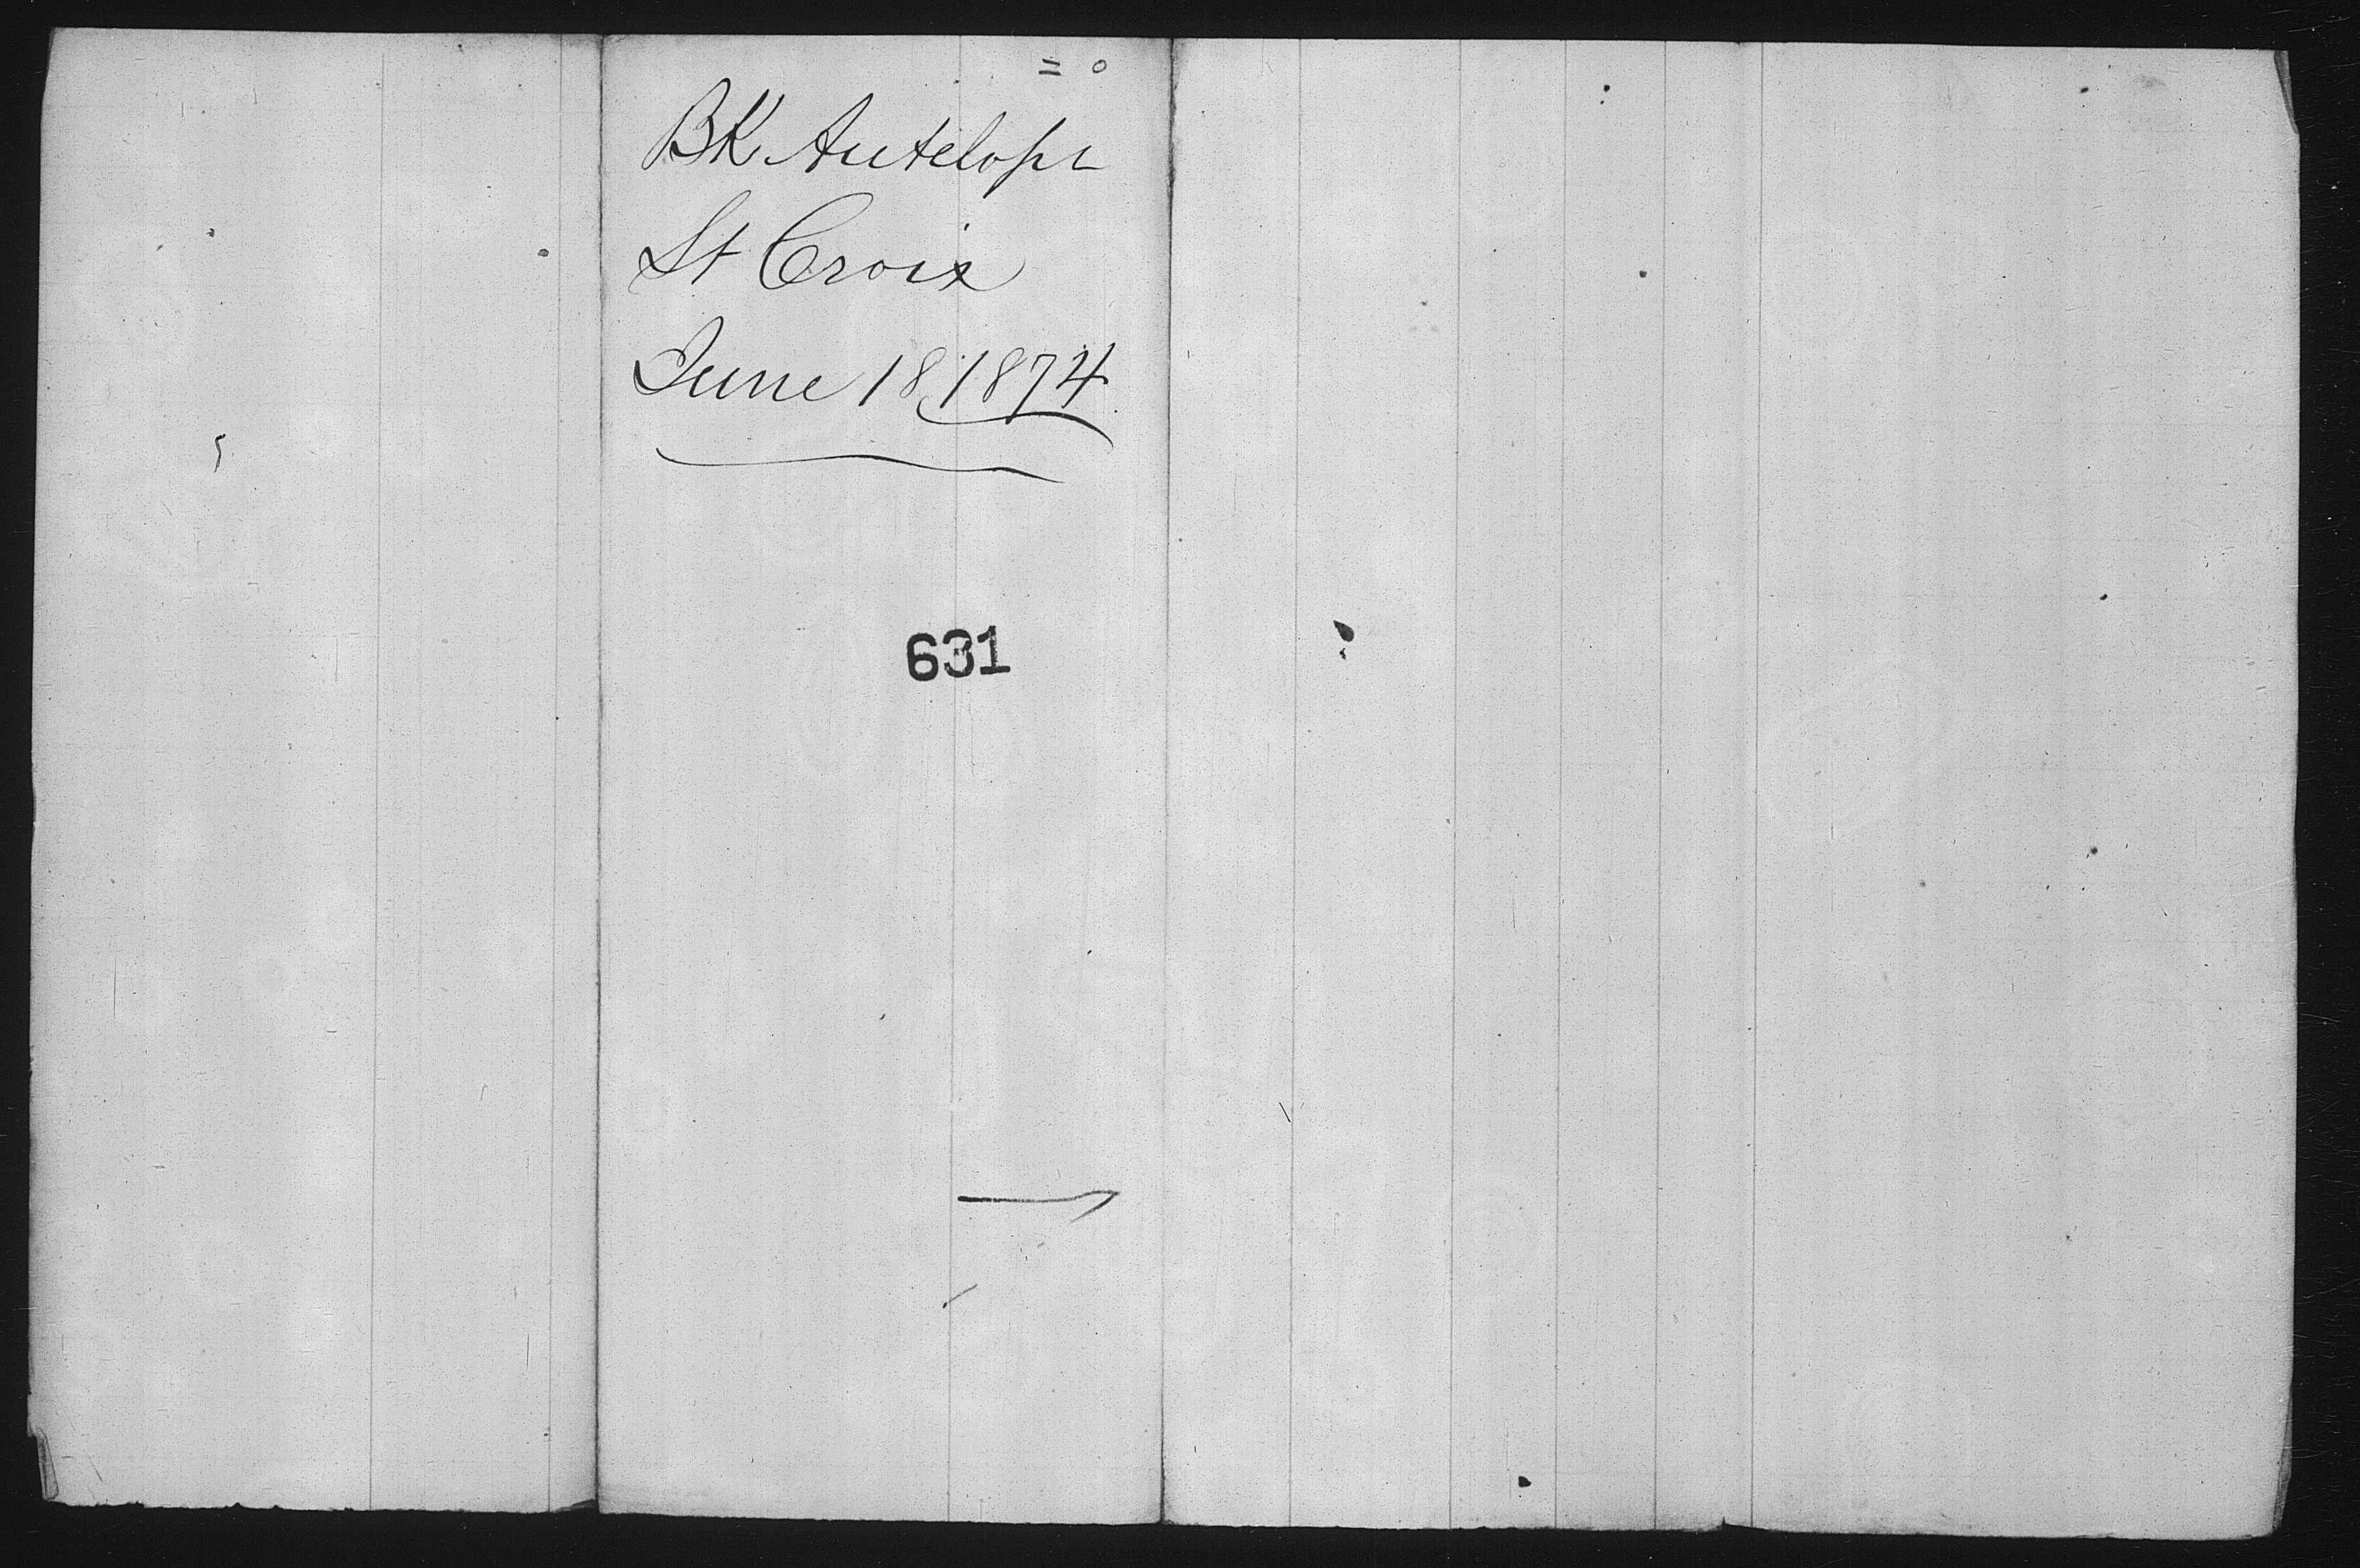 BK Antelope
St Croix
June 18 1874
631